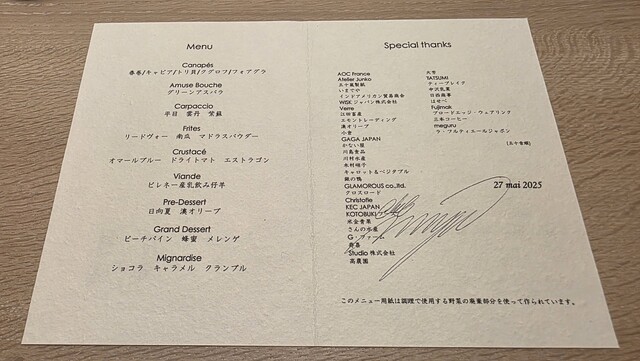 Menu
Canapés
春巻/キャビア/トリ貝/クグロフ/フォアグラ
Amuse Bouche
グリーンアスパラ
Carpaccio
平目 雲丹 紫蘇
Frites
リードヴォー 南瓜 マドラスパウダー
Crustacé
オマールブルー ドライトマト エストラゴン
Viande
ピレネー産乳飲み仔羊
Pre-Dessert
日向夏 湊オリーブ
Grand Dessert
ピーチパイン 蜂蜜 メレンゲ
Mignardise
ショコラ キャラメル クランブル
Special thanks
AOC France
Atelier Junko
五十嵐製紙
いまでや
インドアメリカン貿易商会
WSK ジャパン株式会社
Verre
江田畜産
エモントレーディング
湊オリーブ
小倉
GAGA JAPAN
かない屋
川島食品
川村水産
木村硝子
キャロット&ベジタブル
銀の鴨
GLAMOROUS co.,ltd.
クロスロード
Christofle
KEC JAPAN
KOTOBUKI
米金青果
さんの水産
G・ファーム
Studio 株式会社
高農園
大雪
TATSUMI
ティーブレイク
中沢乳業
日西商事
はせべ
Fujimak
ブロードエッジ・ウェアリンク
三本コーヒー
meguru
ラ・フルティエールジャポン
(五十音順)
27 mai 2025
このメニュー用紙は調理で使用する野菜の廃棄部分を使って作られています。